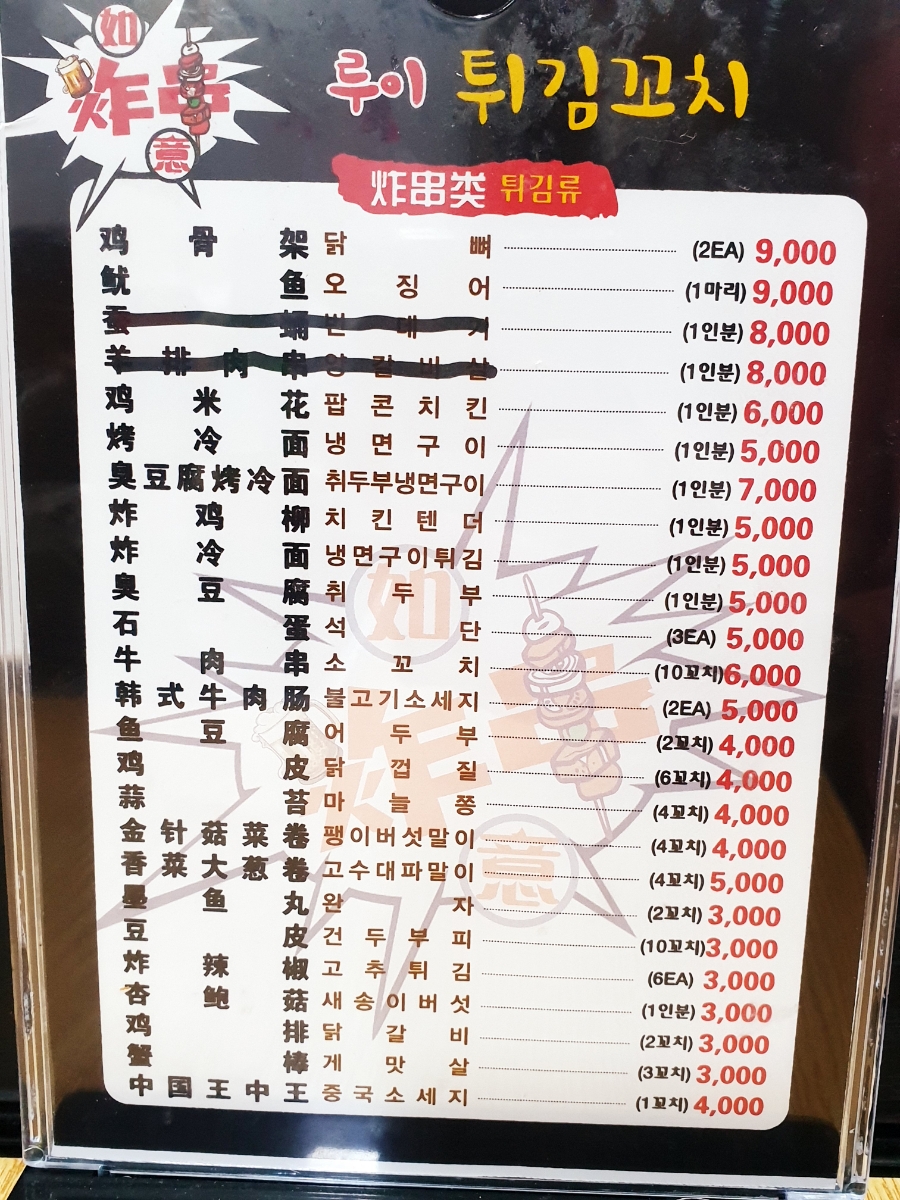 如
炸串
意
루이 튀김꼬치
炸串类 튀김류
鸡骨架 닭뼈 (2EA) 9,000
鱿鱼 오징어 (1마리) 9,000
蚕蛹 번데기 (1인분) 8,000
羊排肉串 양갈비살 (1인분) 8,000
鸡米花 팝콘치킨 (1인분) 6,000
烤冷面 냉면구이 (1인분) 5,000
臭豆腐烤冷面 취두부냉면구이 (1인분) 7,000
炸鸡柳 치킨텐더 (1인분) 5,000
炸冷面 냉면구이튀김 (1인분) 5,000
臭豆腐 취두부 (1인분) 5,000
石蛋 석단 (3EA) 5,000
牛肉串 소꼬치 (10꼬치) 6,000
韩式牛肉肠 불고기소세지 (2EA) 5,000
鱼豆腐 어두부 (2꼬치) 4,000
鸡皮 닭껍질 (6꼬치) 4,000
蒜苔 마늘쫑 (4꼬치) 4,000
金针菇菜卷 팽이버섯말이 (4꼬치) 4,000
香菜大葱卷 고수대파말이 (4꼬치) 5,000
墨鱼丸 완자 (2꼬치) 3,000
豆皮 건두부피 (10꼬치) 3,000
炸辣椒 고추튀김 (6EA) 3,000
杏鲍菇 새송이버섯 (1인분) 3,000
鸡排 닭갈비 (2꼬치) 3,000
蟹棒 게맛살 (3꼬치) 3,000
中国王中王 중국소세지 (1꼬치) 4,000
如
炸串
意